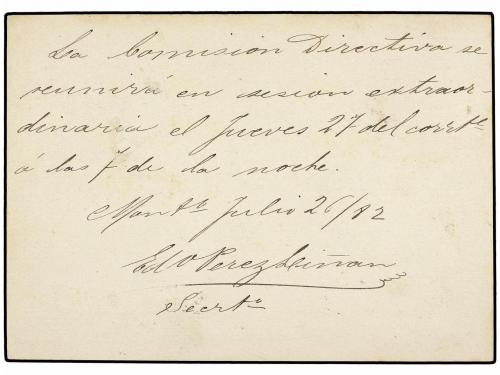 La Comisión Directiva se
reunirá en sesión extraor-
dinaria el Jueves 27 del corrte
á las 7 de la noche.
Montº Julio 26/82
Edº Perez Liñan
Secrtº